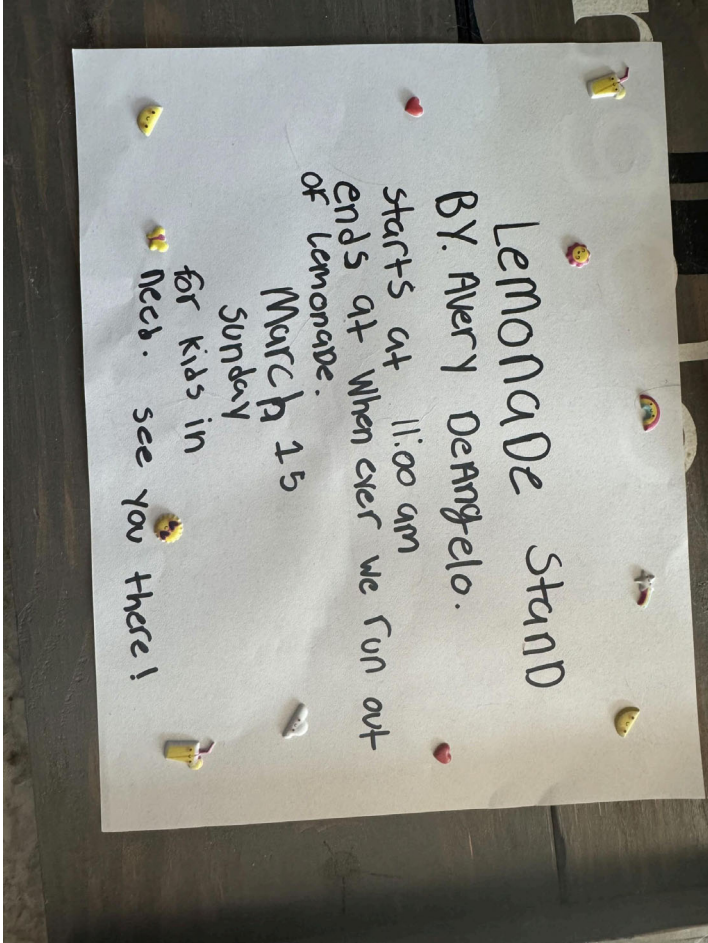 LemonaDe StanD
BY. Avery DeAngelo.
starts at 11:00 am
ends at when ever we run out
of Lemonade.
March 15
Sunday
for kids in
need. see you there!